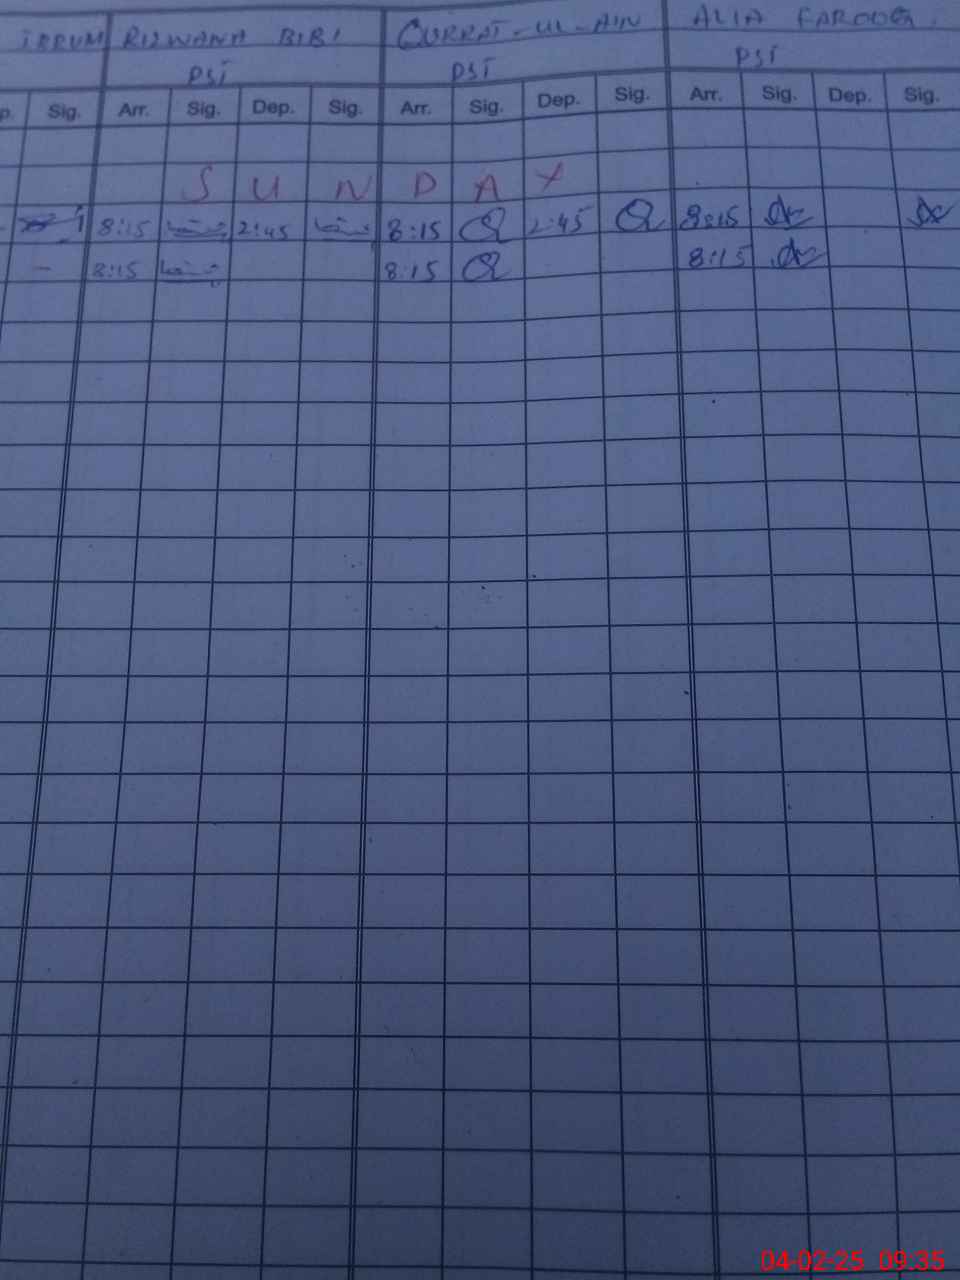 RIZWANA BIBI QURRAT-UL-AIN ALIA FAROOQ.
PST PST PST
Sig. Arr. Sig. Dep. Sig. Arr. Sig. Dep. Sig. Arr. Sig. Dep. Sig.
S U N D A Y
8:15 2:45 8:15 2:45 8:15
8:15 8:15 8:15
04-02-25 09:35